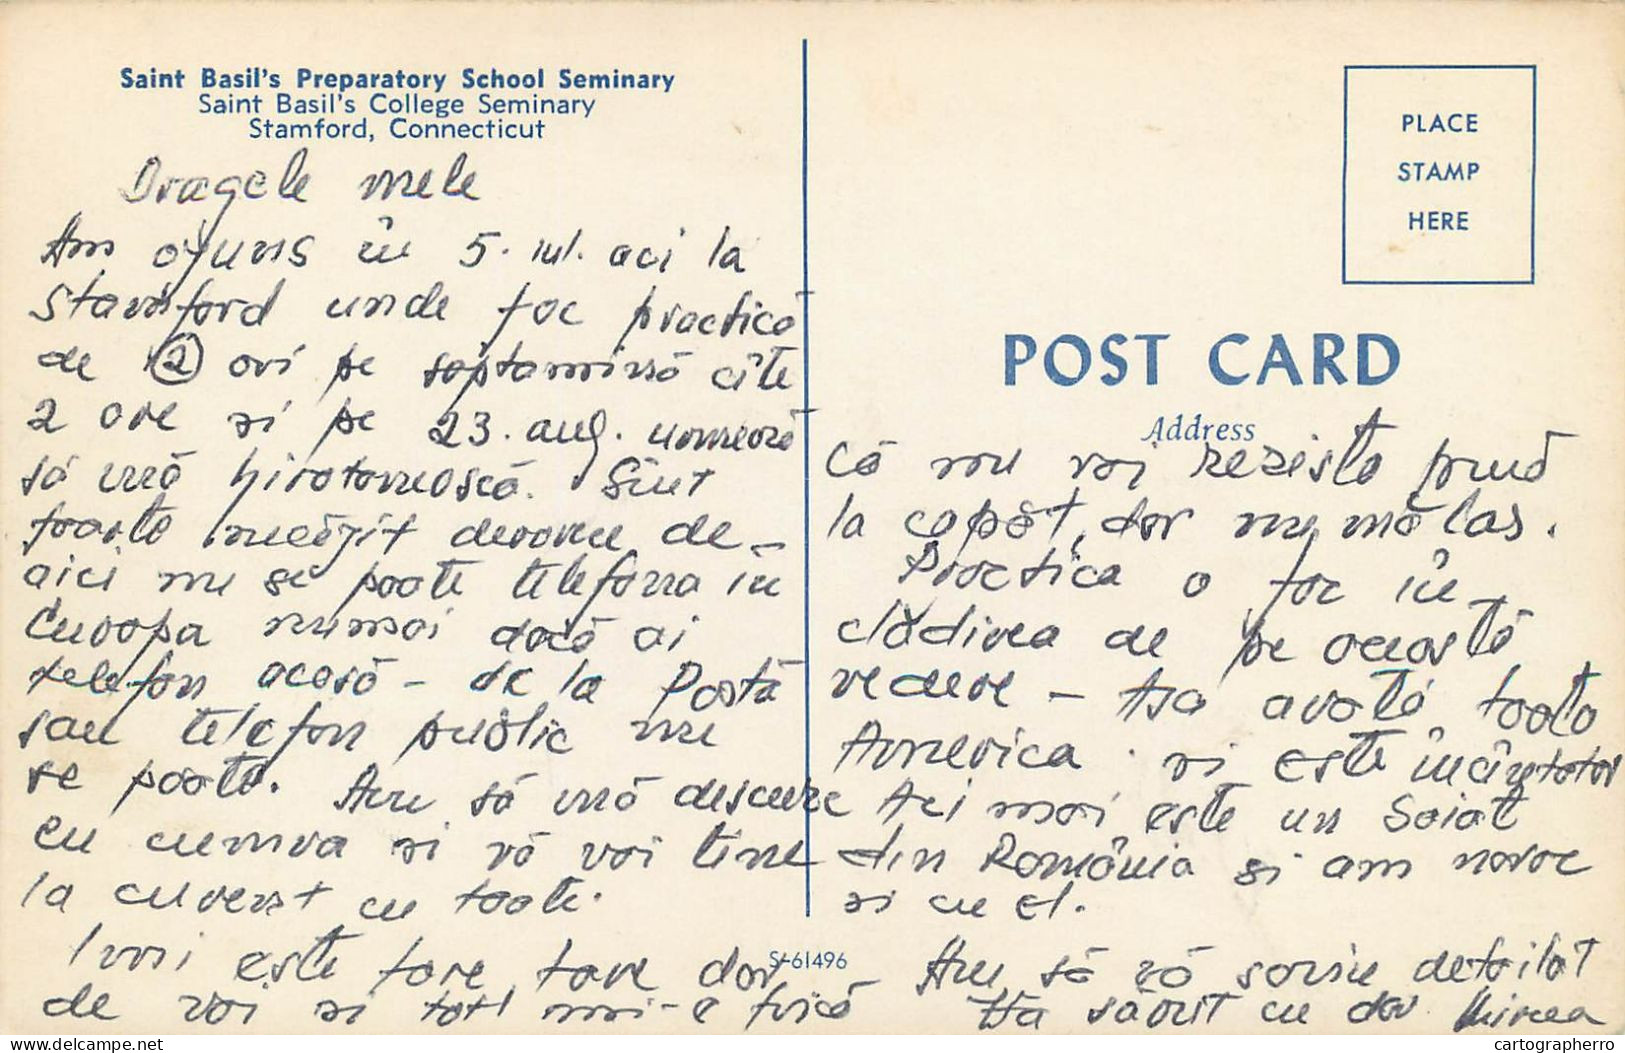 Saint Basil's Preparatory School Seminary
Saint Basil's College Seminary
Stamford, Connecticut
PLACE
STAMP
HERE
POST CARD
Address
Dragele mele
Am ajuns în 5. iul. aci la
Stamford unde fac practică
de 2 ori pe septamînă cîte
2 ore si pe 23. aug. urmează
să mă hirotonească. Sînt
foarte necăjit deoarece de-
aici nu se poate telefona în
Europa numai dacă ai
telefon acasă - de la Postă
sau telefon public nu
se poate. Am să mă descurc
eu cumva si vă voi tine
la curent cu toate.
Imi este tare, tare dor
de voi si tot mi-e frică
că nu voi rezista pînă
la capăt, dar nu mă las.
Practica o fac în
clădirea de pe această
vedere - toată
America si este încîntător
Aci mai este un băiat
din România si am noroc
si cu el.
Am să vă scriu detailat
Vă sărut cu dor Mircea
S-61496
cartographerro